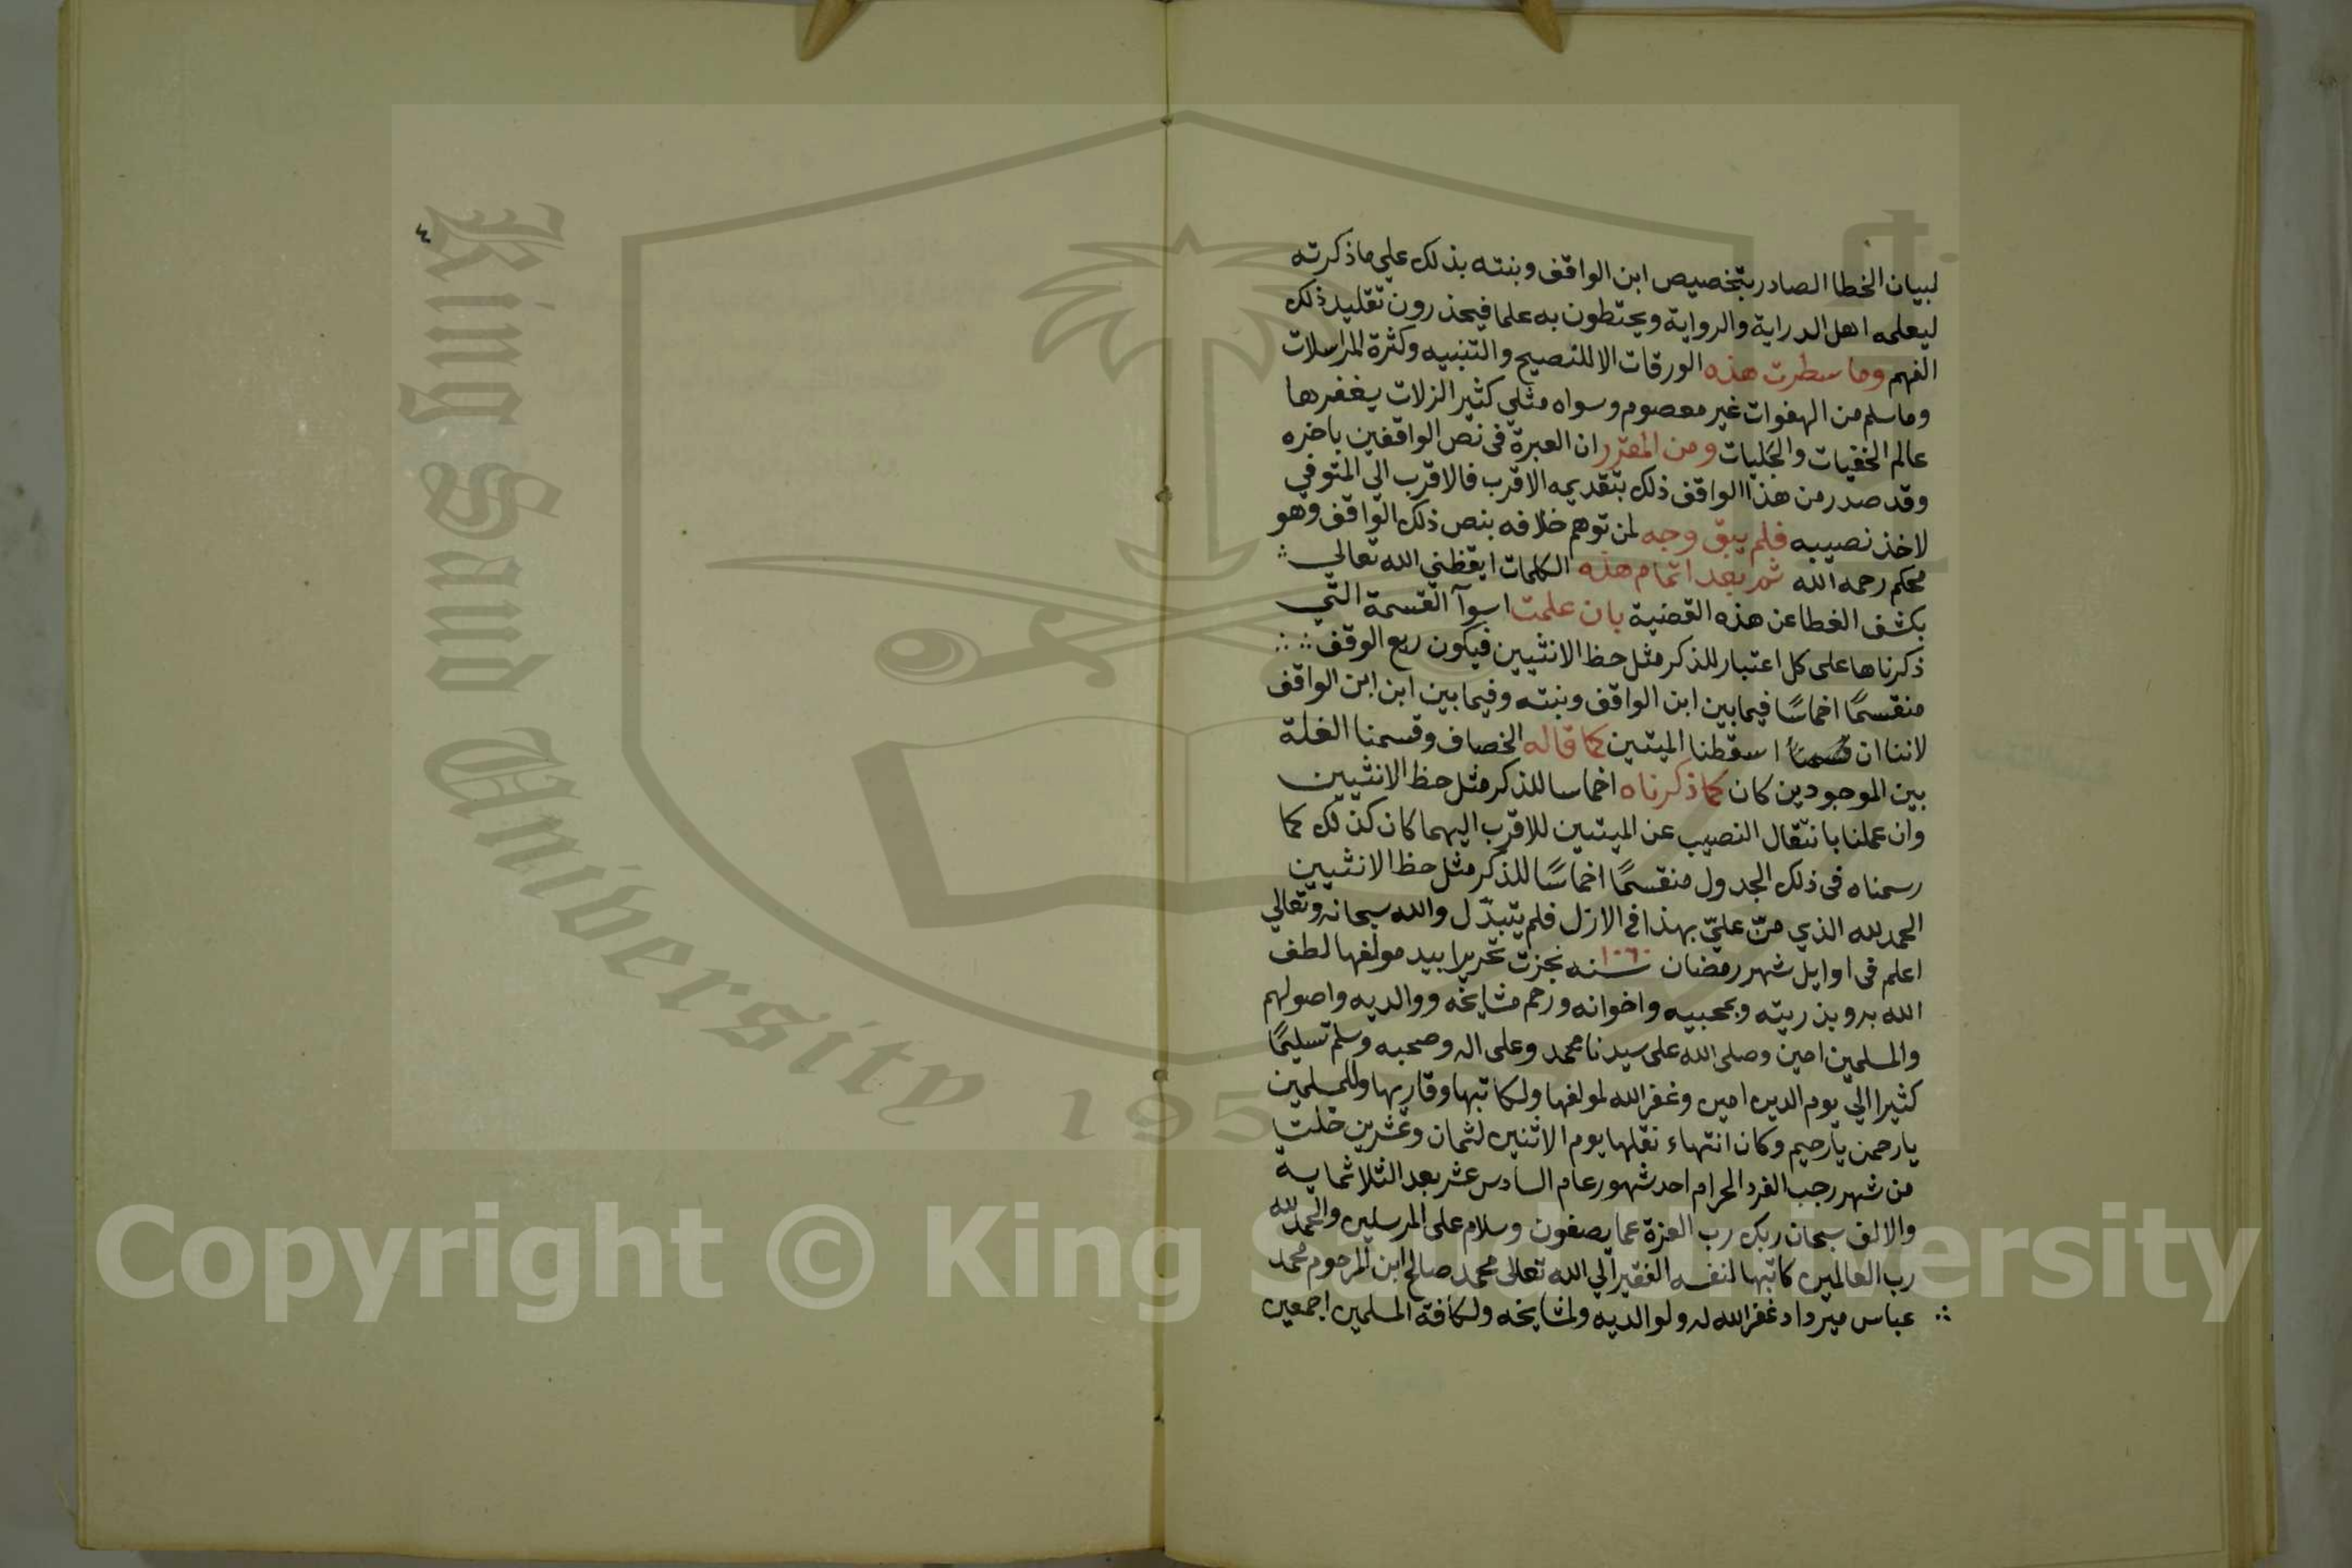 لبيان الخطا الصادر بتخصيص ابن الواقف وبنته بذلك علي ما ذكرته
ليعلمه اهل الدراية والرواية ويحتطون به علما فيحذرون تقليد ذلك
الفهم وما سطرت هذه الورقات الا للنصيح والتنبيه وكثرة المراسلات
وما سلم من الهفوات غير معصوم وسواه مثلي كثير الزلات يغفرها
عالم الخفيات والجليات ومن المقرر ان العبرة في نص الواقفين باخره
وقد صدر من هذا الواقف ذلك بتقديمه الاقرب فالاقرب الي المتوفي
لاخذ نصيبه فلم يبق وجه لمن توهم خلافه بنص ذلك الواقف وهو
محكم رحمه الله ثم بعد اتمام هذه الكلمات ايقظني الله تعالي
بكشف الغطا عن هذه القضية بان علمت اسوآ القسمة التي
ذكرناها على كل اعتبار للذكر مثل حظ الانثيين فيكون ريع الوقف
منقسمًا اخماسًا فيما بين ابن الواقف وبنته وفيما بين ابن ابن الواقف
لاننا ان اسقطنا الميتين كما قاله الخصاف وقسمنا الغلة
بين الموجودين كان كما ذكرناه اخماسا للذكر مثل حظ الانثيين
وان عملنا بانتقال النصيب عن الميتين للاقرب اليهما كان كذلك كما
رسمناه في ذلك الجدول منقسمًا اخماسًا للذكر مثل حظ الانثيين
الحمد لله الذي منّ عليّ بهذا في الازل فلم يتبدّل والله سبحانه وتعالي
اعلم في اوايل شهر رمضان سنه ١٠٦٠ نجزت تحريرا بيد مولفها لطف
الله به وبذريته وبمحبيه واخوانه ورحم مشايخه ووالديه واصولهم
والمسلمين امين وصلى الله على سيدنا محمد وعلى اله وصحبه وسلم تسليمًا
كثيرا الي يوم الدين امين وغفر الله لمولفها ولكاتبها وقاريها وللمسلمين
يا رحمن يا رحيم وكان انتهاء نقلها يوم الاثنين لثمان وعشرين خلت
من شهر رجب الفرد الحرام احد شهور عام السادس عشر بعد الثلاثماية
والالف سبحان ربك رب العزة عما يصفون وسلام على المرسلين والحمد لله
رب العالمين كاتبها لنفسه الفقير الي الله تعالى محمد صالح ابن المرحوم محمد
عباس ميرداد غفر الله له ولوالديه ولمشايخه ولكافة المسلمين اجمعين
٤
King Saud University 195
Copyright © King Saud University